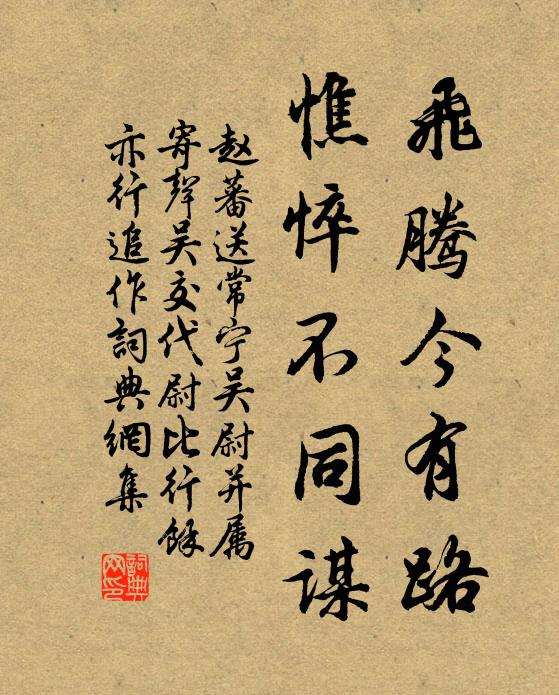 飛騰今有路
憔悴不同謀
赵蕃送常宁吴尉并属
寄聲吴交代尉比行餘
亦行追作詞典網集
詞典网印